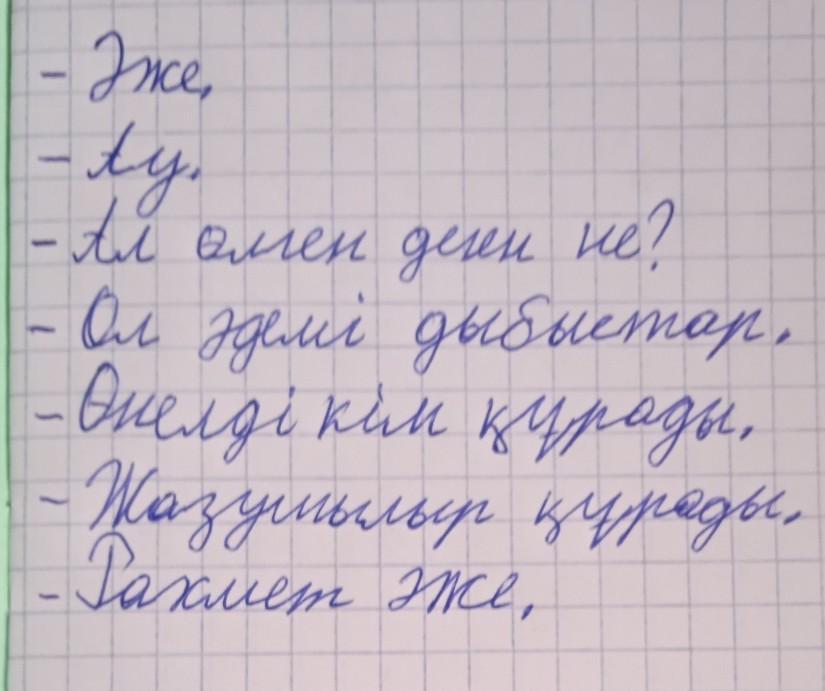 - Әже,
- Ау.
- Ал өлген деген не?
- Ол әдемі дыбыстар.
- Өнелді кім құрады.
- Жазушылыр құрады.
- Рахмет әже,